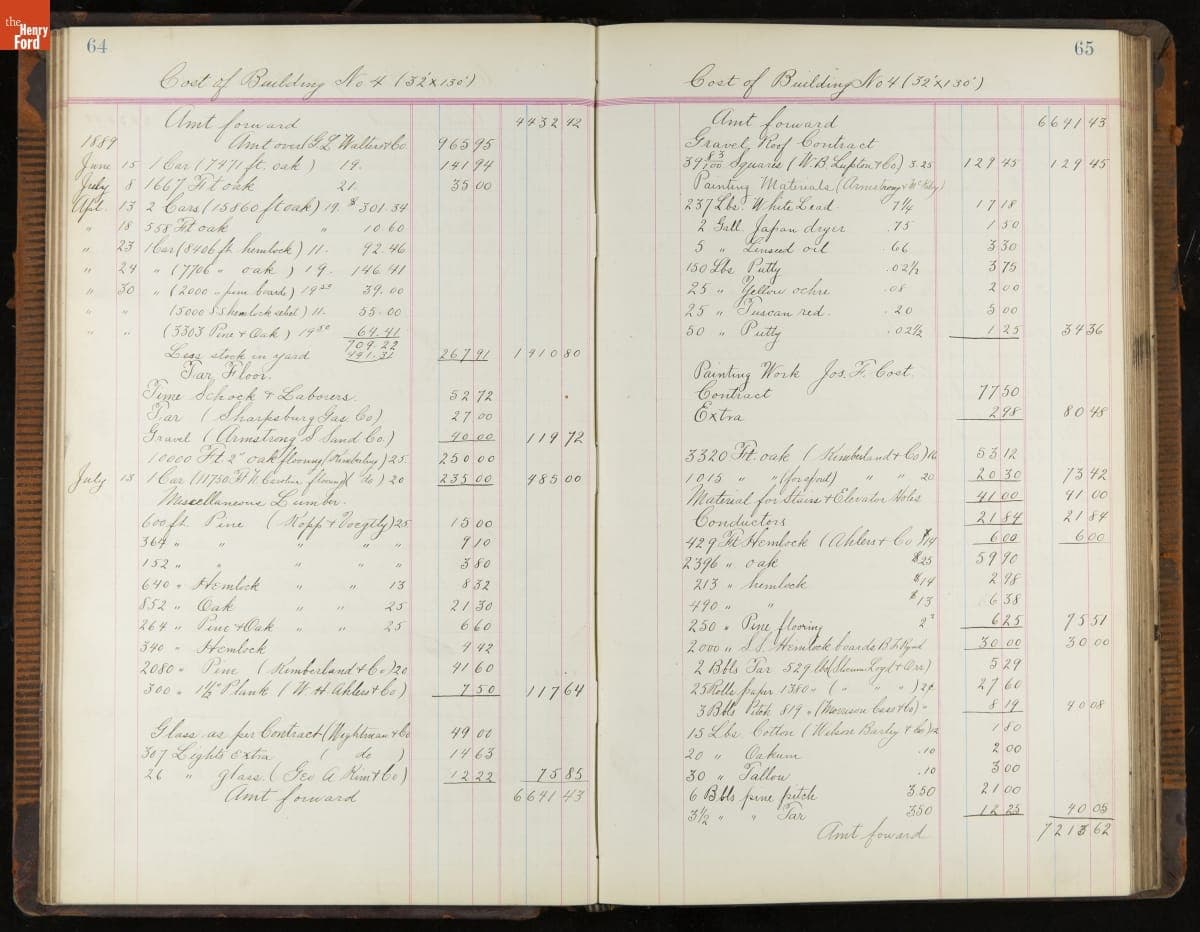 the Henry Ford
64
Cost of Building No 4 (32'x130')
Amt forward 4432 42
1889 Amt over G. L. Walter & Co 965 95
June 15 1 Car (7471 ft. oak) 19. 141 94
July 8 1667 Ft oak 21. 35 00
Apl. 13 2 Cars (15860 ft oak) 19. $301.34
" 18 558 Ft oak " 10.60
" 23 1 Car (8406 ft hemlock) 11. 92.46
" 24 " (7706 " oak) 19. 146.41
" 30 " (2000 " pine boards) 19 50 39.00
" " (5000 S S hemlock select) 11. 55.00
" " (3303 Pine & Oak) 19 50 64.41
709.22
Less stock in yard 441.31 267 91 1410 80
Tar Floor.
Time Schock & Laborers. 52 72
Tar (Sharpsburg Gas Co) 27 00
Gravel (Armstrong S Sand Co.) 40 00 119 72
10000 Ft 2" oak flooring (Kimberling) 25. 250 00
July 13 1 Car (11750 Ft N. Carolina flooring) (do) 20 235 00 485 00
Miscellaneous Lumber.
600 ft. Pine (Kopp & Voegtly) 25 15 00
364 " " " " " 9 10
152 " " " " " 3 80
640 " Hemlock " " 13 8 32
852 " Oak " " 25 21 30
264 " Pine & Oak " " 25 6 60
340 " Hemlock 4 42
2080 " Pine (Kimberland & Co) 20 41 60
300 " 1½" Plank (W. H Ahlers & Co) 7 50 117 64
Glass as per Contract (Wightman & Co 49 00
307 Lights Extra (do) 14 63
26 " glass (Geo A Kim & Co) 12 22 75 85
Amt forward 6641 43
65
Cost of Building No 4 (32'x130')
Amt forward 6641 43
Gravel Roof Contract
39 83/100 Squares (W. B. Lupton & Co) 3.25 129 45 129 45
Painting Materials (Armstrong & McKelvy)
237 Lbs. White Lead 7¼ 17 18
2 Gall. Japan dryer .75 1 50
5 " Linseed oil .66 3 30
150 Lbs Putty .02½ 3 75
25 " Yellow ochre .08 2 00
25 " Tuscan red. .20 5 00
50 " Putty .02½ 1 25 34 36
Painting Work Jos. F. Cost.
Contract 77 50
Extra 2 98 80 48
3320 Ft. oak (Kimberland & Co) 16 53 12
1015 " " (for spout) " " 20 20 30 73 42
Material for Stairs & Elevator Holes 41 00 41 00
Conductors 21 84 21 84
429 Ft Hemlock (Ahlers & Co $14 6 00 6 00
2396 " oak $25 59 90
213 " hemlock $14 2 98
490 " " $13 6 38
250 " Pine flooring 6 25 75 51
2000 " S.S. Hemlock boards 30 00 30 00
2 Bbls Tar 529 lbs 5 29
25 Rolls paper 1380 " ( " " " ) 2¢ 27 60
3 Bbls Pitch 819 " (Morrison Cass & Co) " 8 19 40 08
15 Lbs Cotton (Wilson Barley & Co) 12 1 80
20 " Oakum .10 2 00
30 " Tallow .10 3 00
6 Bbls pine pitch 3.50 21 00
3½ " " Tar 350 12 25 40 05
Amt foward 7213 62